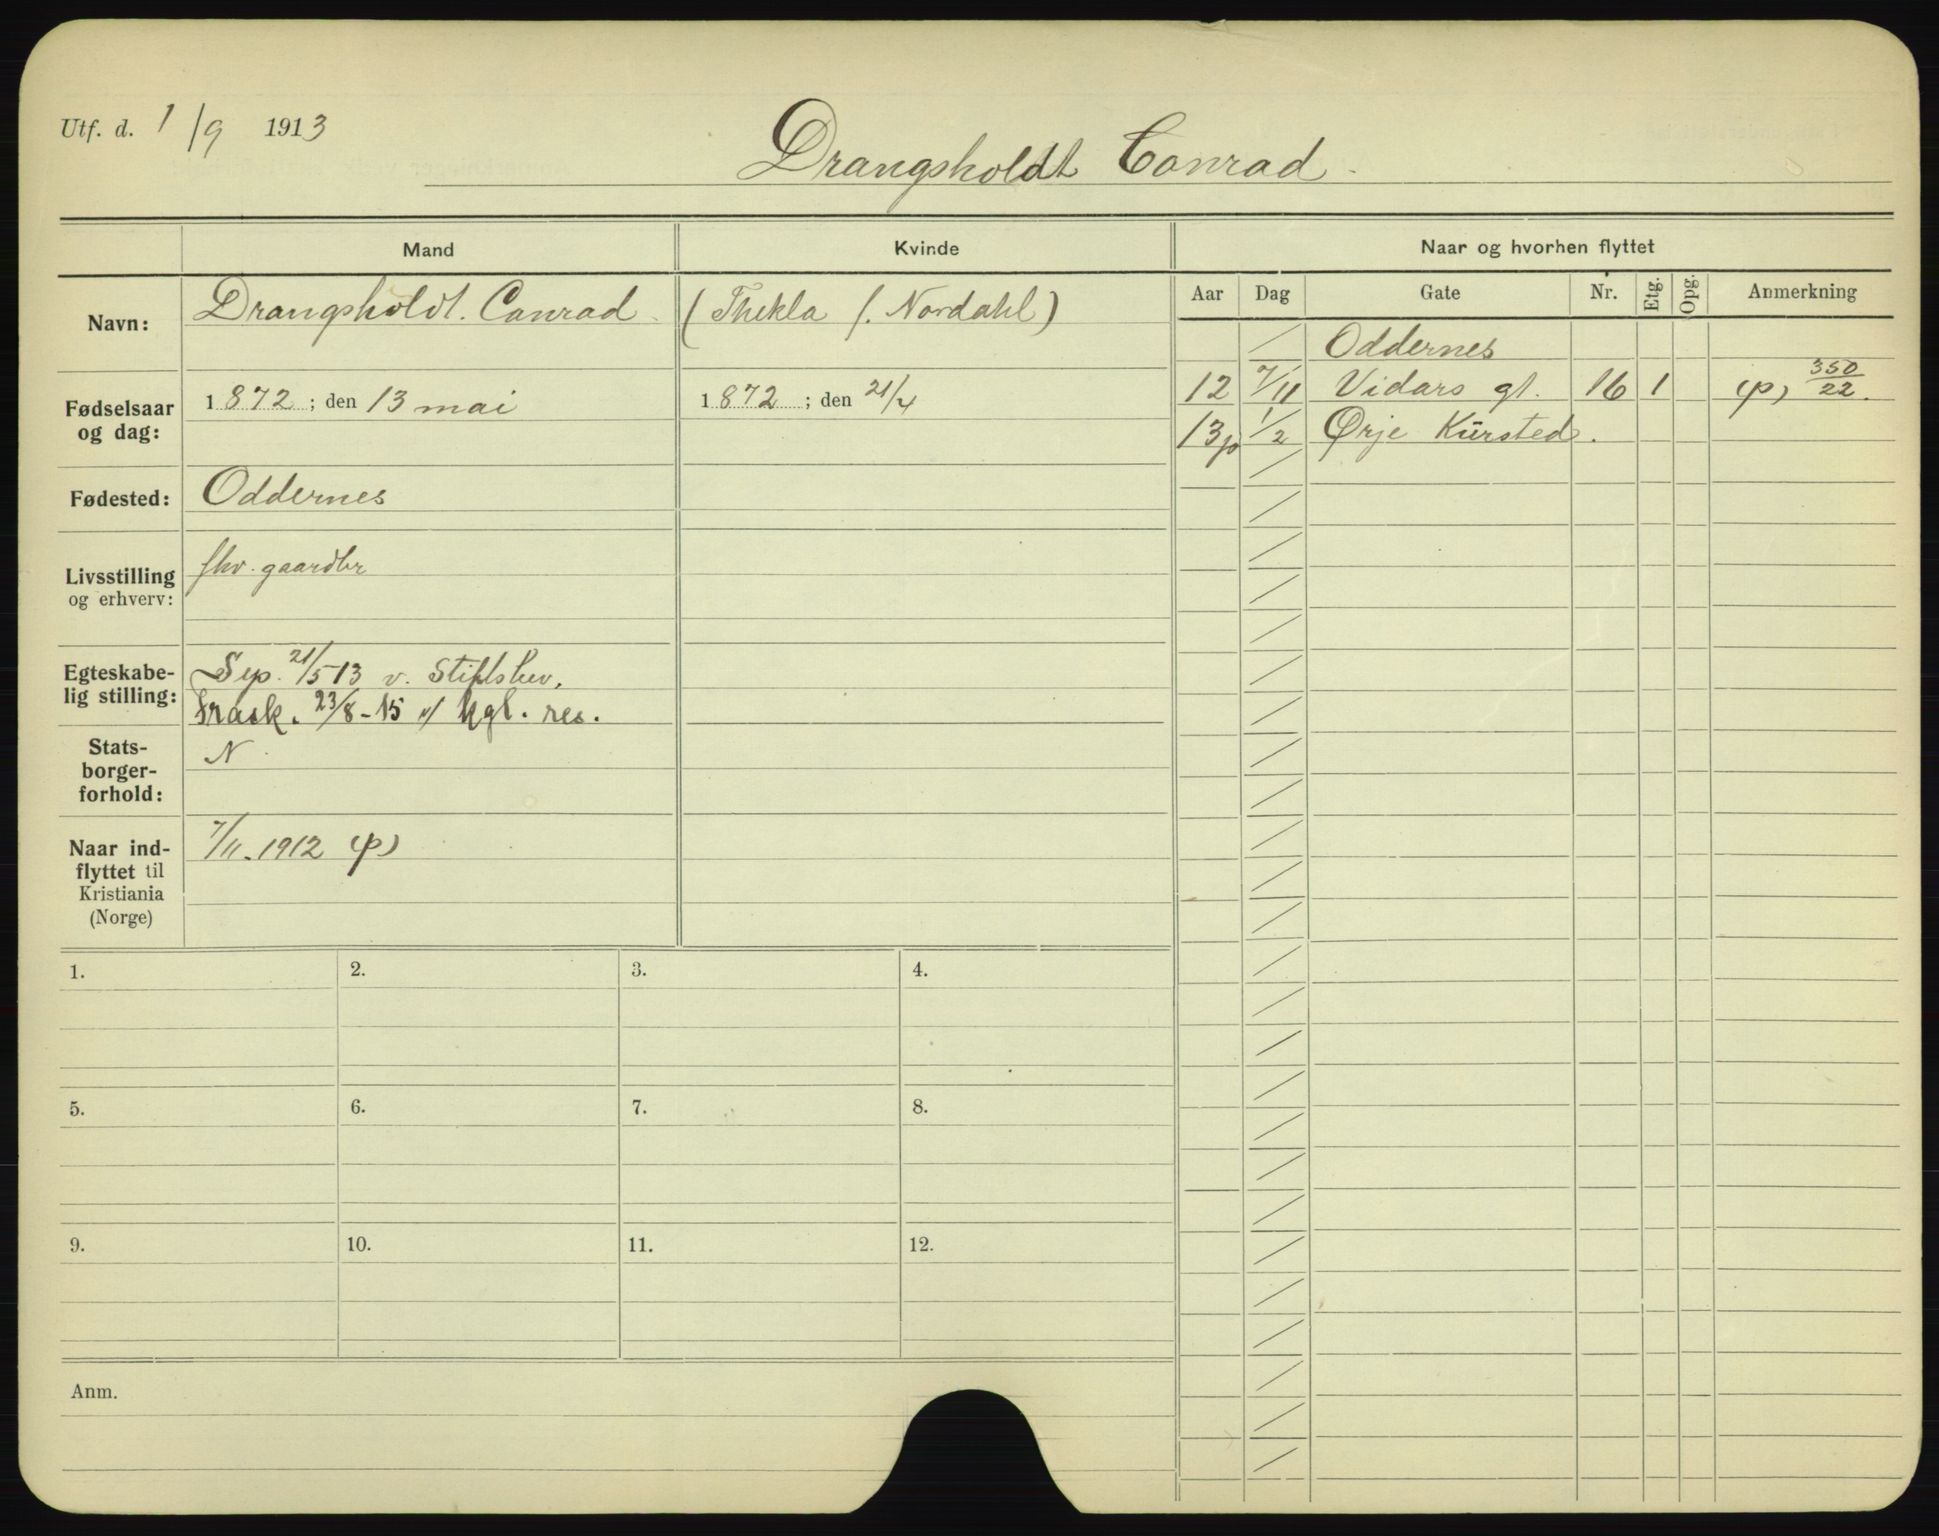 Utf. d. 1/9 1913
Drangsholdt Conrad
Mand
Kvinde
Naar og hvorhen flyttet
Navn:
Drangsholdt. Conrad
(Thekla f. Nordahl)
Aar Dag Gate Nr. Etg. Opg. Anmerkning
Oddernes
12 7/11 Vidars gt. 16 1 (p) 350/22.
13 p 1/2 Ørje Kursted.
Fødselsaar og dag:
1872; den 13 mai
1872; den 21/4
Fødested:
Oddernes
Livsstilling og erhverv:
fhv. gaardbr
Egteskabe-
lig stilling:
Sep. 21/5-13 v.
23/8-15 v/ kgl. res.
Stats-
borger-
forhold:
N
Naar ind-
flyttet til
Kristiania
(Norge)
7/11.1912 (p)
1. 2. 3. 4.
5. 6. 7. 8.
9. 10. 11. 12.
Anm.